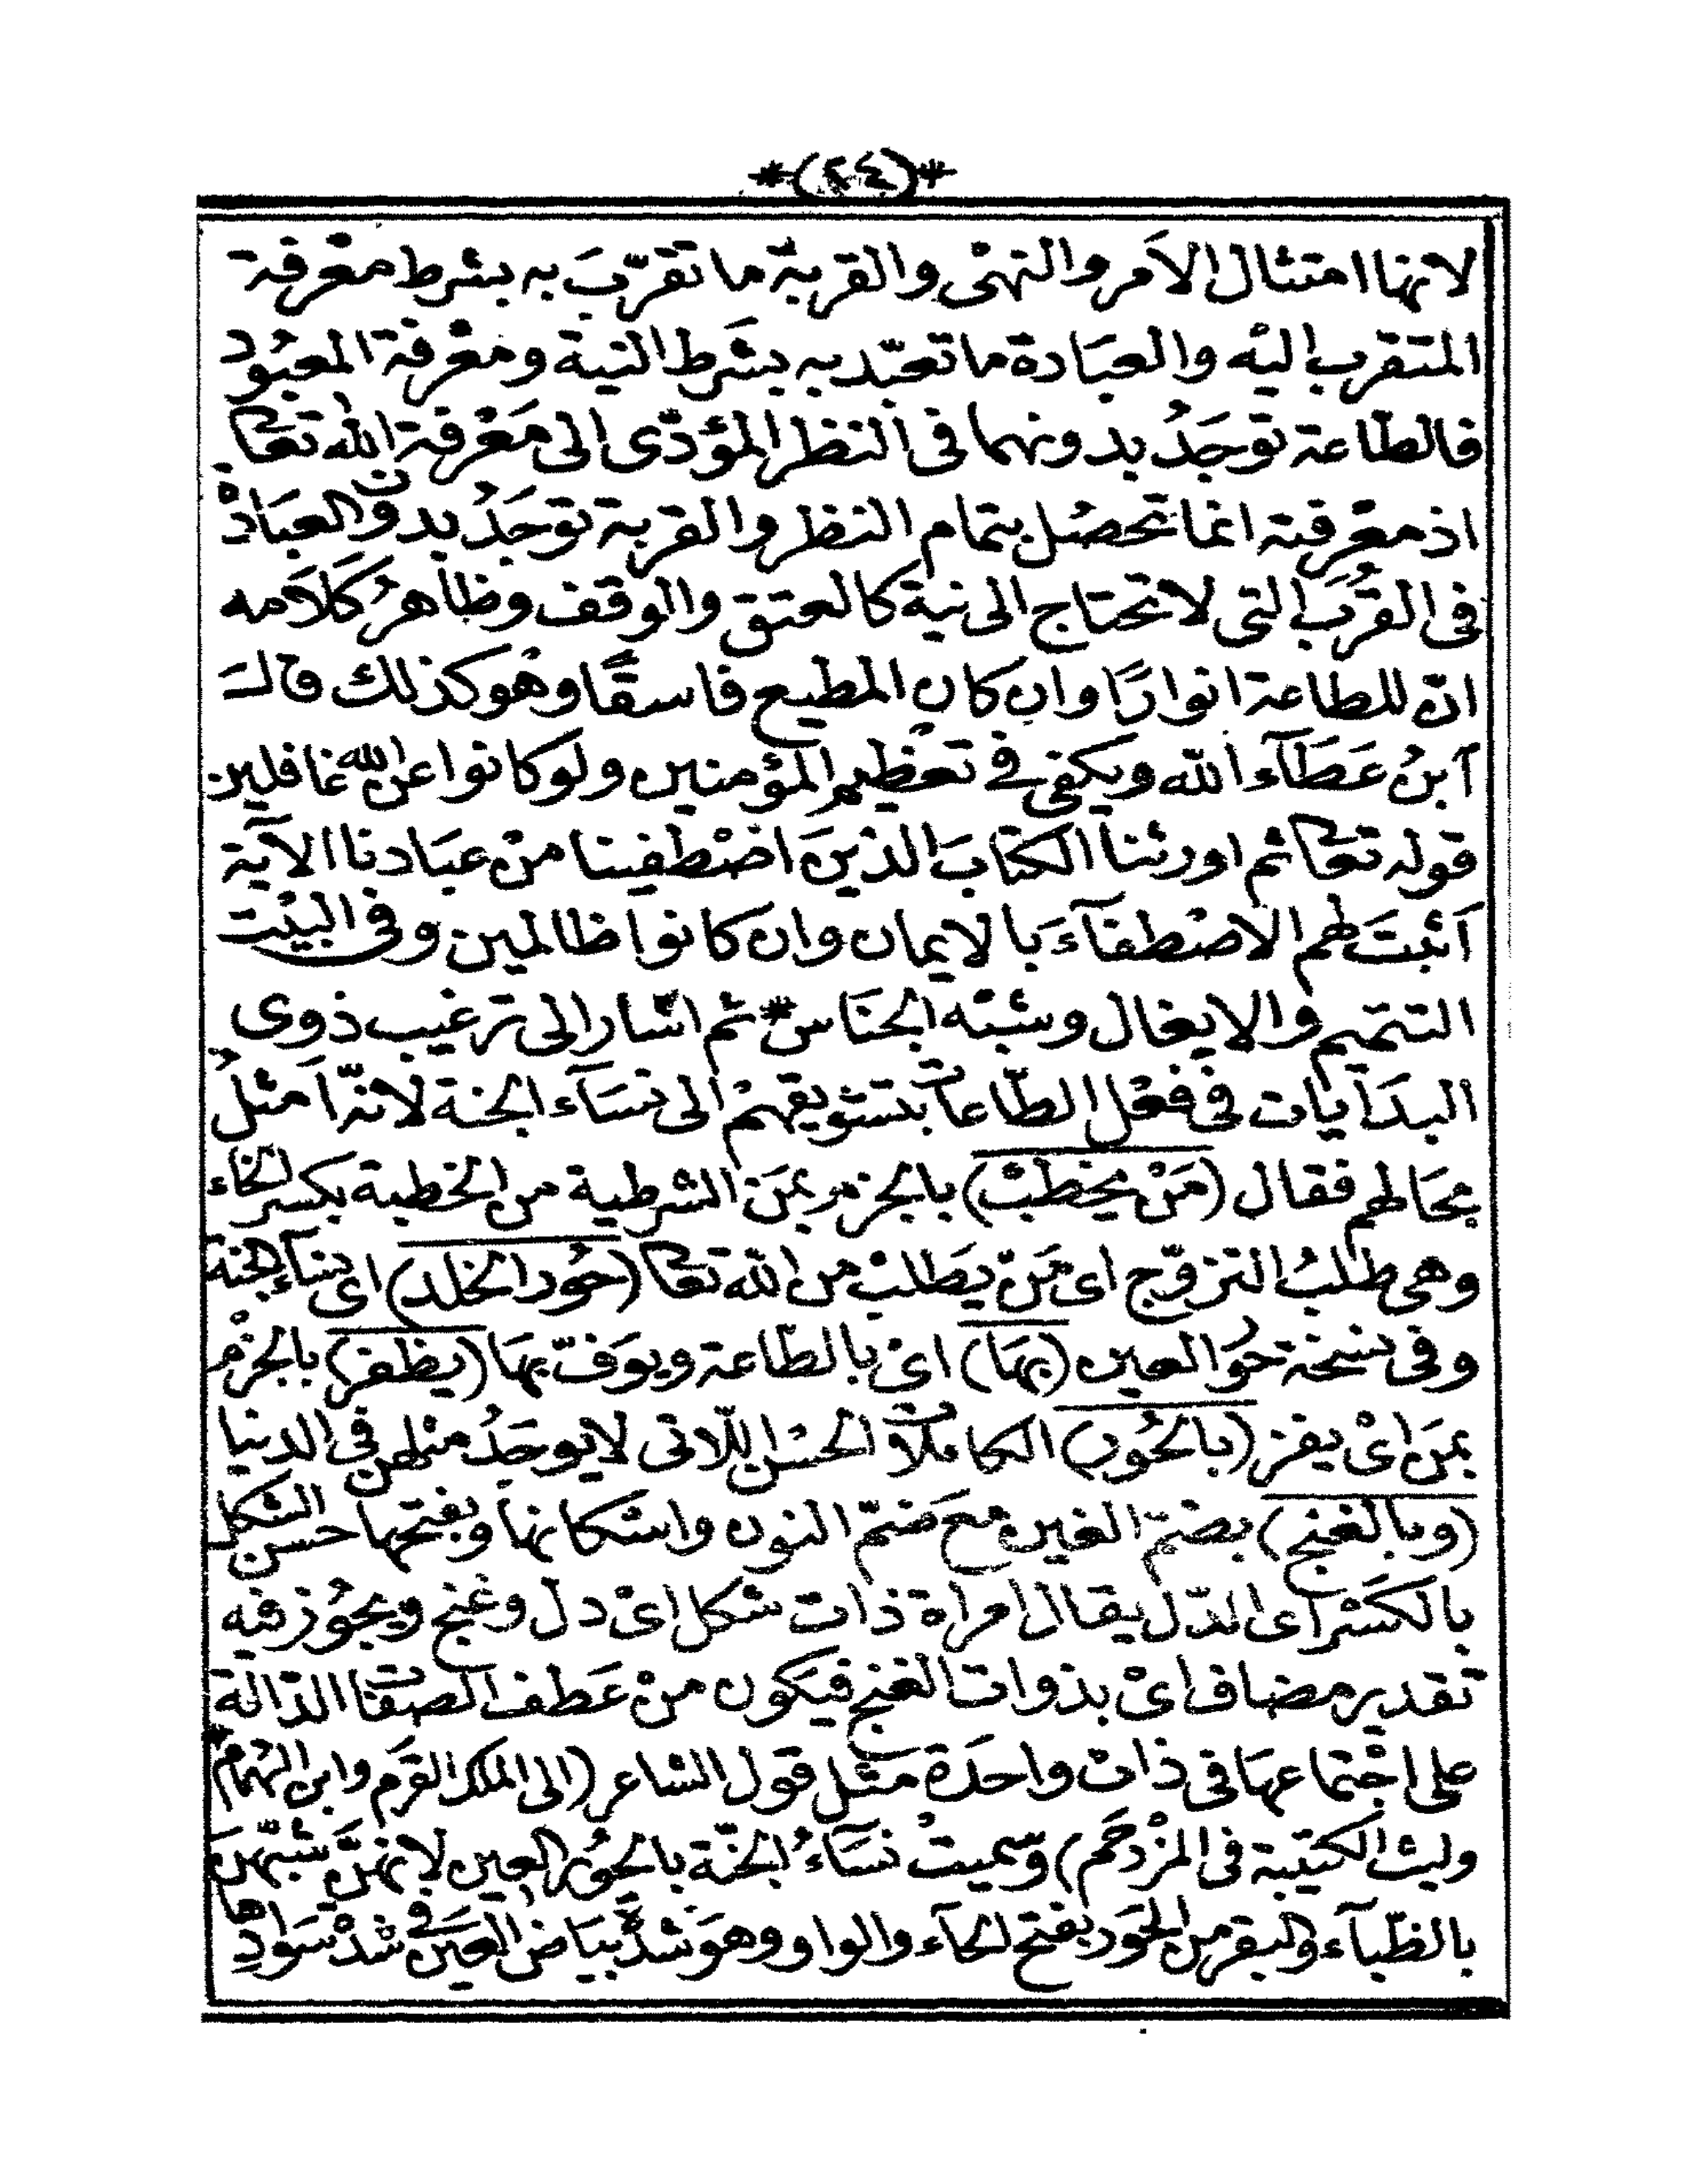 *(٢٤)*
لانها امتثال الاَمر والنهْى والقربة ما تقرّبَ به بشرط معْرفة
المتقرب اليْه والعبَادة ما تعبّد به بشَرط النية ومعْرفة المعبُود
فالطّاعة توجَدُ بدونهما فى النظر المؤدّى الى مَعْرفة الله تعَالى
اذ معْرفته انما تحصُل بتمام النظر والقربة توجَدُ بدون العبَادة
فى القُرَب التى لا تحتاج الى نية كالعتق والوقف وظاهرُ كَلاَمه
انّ للطاعة انوارًا وان كان المطيع فاسقًا وهْو كذلك قال
آبنُ عَطَآء الله ويكفى فى تعْظيم المؤمنين ولو كانوا عن الله غافلين
قوله تعَالى ثم اورثنا الكتابَ الذينَ اصْطفينا منْ عبَادنا الآية
آثبتَ لهم الاصْطفآءَ بالايمان وان كانوا ظالمين وفى البيْت
التتميم والايغال وشبْه الجنَاس * ثم اشار الى ترغيب ذوى
البدَايات فى فعْل الطّاعات بتشويقهمْ الى نسَآء الجنة لانهّ اَمثلُ
بحَالهم فقال (مَنْ يخطُبْ) بالجزم بمَن الشرطية من الخطبة بكسر الخاء
وهى طلبُ التزوّج اى مَنْ يَطلبْ من الله تعَالى (حُورَ الخلد) اى نسَآء الجنة
وفى نسْخة حُور العين (بهَا) اىْ بالطّاعة ويوَفّ بهَا (يظفرْ) بالجزْم
بمَن اىْ يفز (بالحُور) الكاملات الحسْن اللّاتى لا يوجَدُ مثلهن فى الدنيا
(وبالغنج) بضمّ الغين مع ضمّ النون واسْكانها وبفتحها حسن الشكل
بالكَسْر اى الدّل يقال امراة ذات شكل اىْ دل وغنج ويجُوز فيْه
تقدير مضاف اىْ بذوات الغنج فيَكون منْ عَطف الصفات الدّالة
على اجْتماعهَا فى ذات واحدَة مثل قول الشاعر (الى الملك القرَم وابن الهُمام *
وليث الكتيبة فى المزْدحَم) وسميتْ نسَآءُ الجنّة بالحُور العين لانهنَّ شبّهنَ
بالظّبآء والبقر من الحَوَر بفتح الحآء والواو وهوَ شدّة بيَاض العَين فى شدْة سَوادها